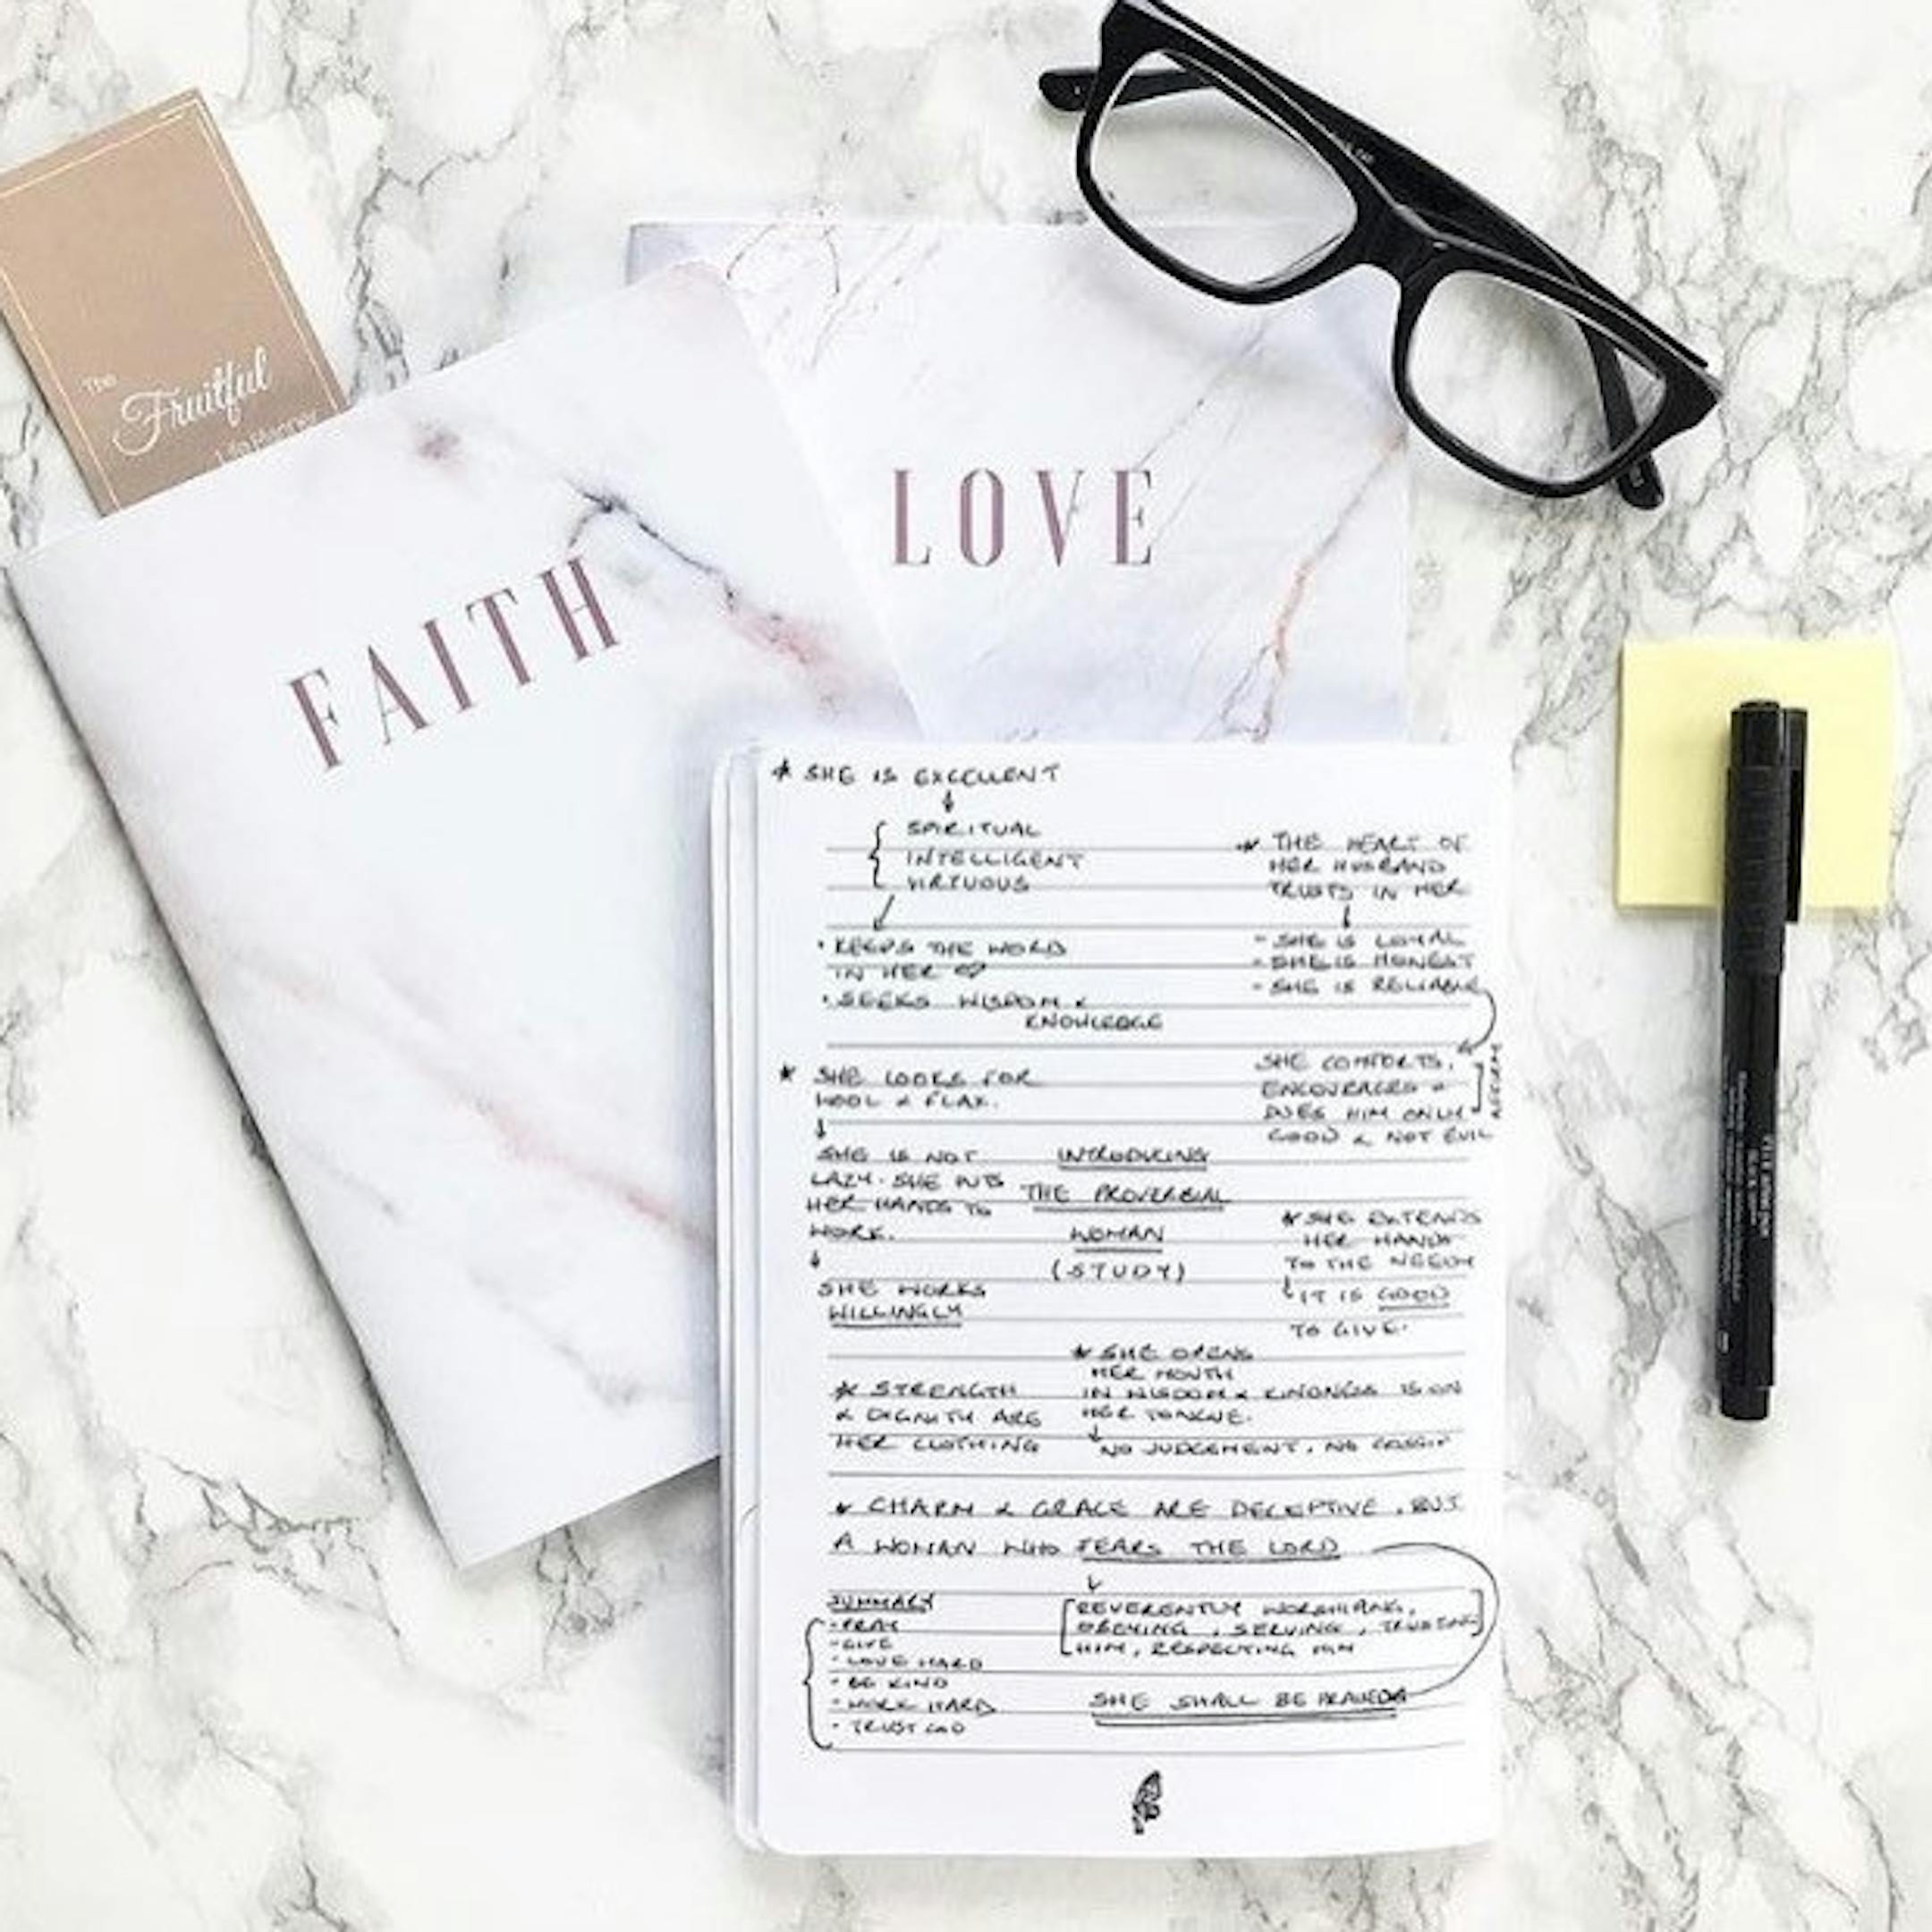 The
Fruitful
Life Planner
FAITH
LOVE
* SHE IS EXCELLENT
↓
SPIRITUAL
INTELLIGENT
VIRTUOUS
• KEEPS THE WORD
IN HER ♡
• SEEKS WISDOM &
KNOWLEDGE
* THE HEART OF
HER HUSBAND
TRUSTS IN HER
↓
- SHE IS LOYAL
- SHE IS HONEST
- SHE IS RELIABLE
SHE COMFORTS,
ENCOURAGES &
DOES HIM ONLY
GOOD & NOT EVIL
* SHE LOOKS FOR
WOOL & FLAX.
↓
SHE IS NOT
LAZY. SHE PUTS
HER HANDS TO
WORK.
↓
SHE WORKS
WILLINGLY
INTRODUCING
THE PROVERBIAL
WOMAN
(STUDY)
* SHE EXTENDS
HER HANDS
TO THE NEEDY
IT IS GOOD
TO GIVE.
* SHE OPENS
HER MOUTH
IN WISDOM & KINDNESS IS ON
HER TONGUE.
↓ NO JUDGEMENT, NO GOSSIP
* STRENGTH
& DIGNITY ARE
HER CLOTHING
* CHARM & GRACE ARE DECEPTIVE, BUT
A WOMAN WHO FEARS THE LORD
↓
[REVERENTLY WORSHIPING,
OBEYING, SERVING, TRUSTING
HIM, RESPECTING HIM]
SHE SHALL BE PRAISED
SUMMARY
- PRAY
- GIVE
- LOVE HARD
- BE KIND
- WORK HARD
- TRUST GOD